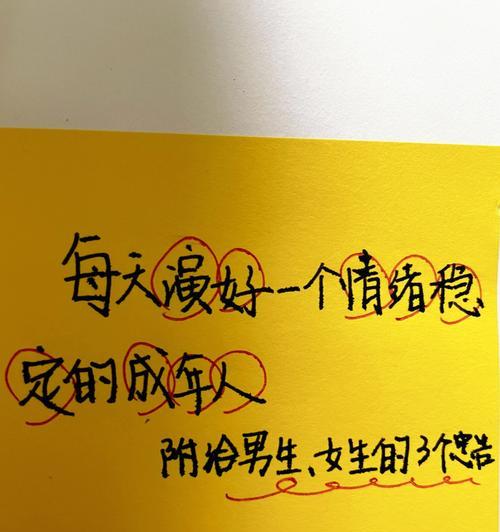 每天演好一个情绪稳
定的成年人
附给男生、女生的3个忠告